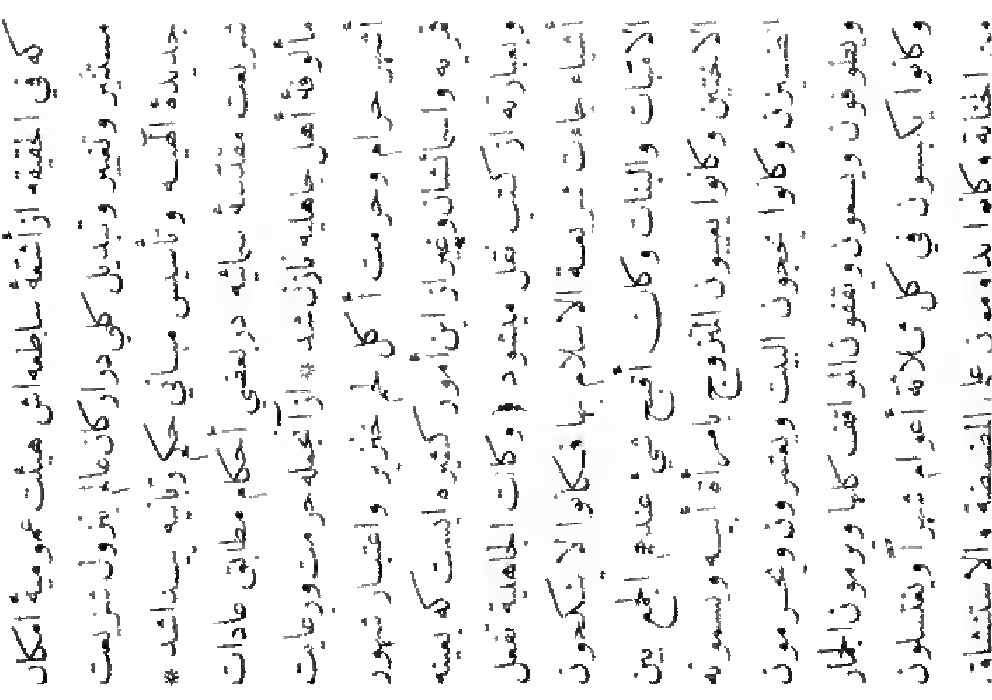 كه في الحقيقه از أشعّهٔ ساطعه‌اش هيئت عموميهٔ امكان
مستنير و تغيير و تبديل كلّي در اركان عالم بنزول شريعت
جديدهٔ الهيه و تأسيس مباني حكم ربانيه پيدا شد *
شريعت مقدسهٔ سمائيه در بعضي أحكام مطابق عادات
مألوفهٔ أهل جاهليه نازل شد * از آنجمله حرمت و رعايت
أشهر حرام و حرمت أكل لحم خنزير و اعتبار شهور
قمريه واسمائشان وغير از اين أمور كثيره ايست كه بعينه
وبعبارته از كتب نقل ميشود (وكانت الجاهلية تفعل
أشياء جاءت شريعة الاسلام بها فكانوا لا ينكحون
الامهات والبنات وكان اقبح شيء عندهم الجمع بين
الاختين وكانوا يعيبون المتزوج بامرأة أبيه ويسمونه
الضيزن وكانوا يحجون البيت ويعتمرون ويحرمون
ويطوفون ويسعون ويقفون المواقف كلها ويرمون الجمار
وكانوا يكبسون في كل ثلاثة أعوام شهراً ويغتسلون
من الجنابة وكانوا يداومون على المضمضة والاستنشاق